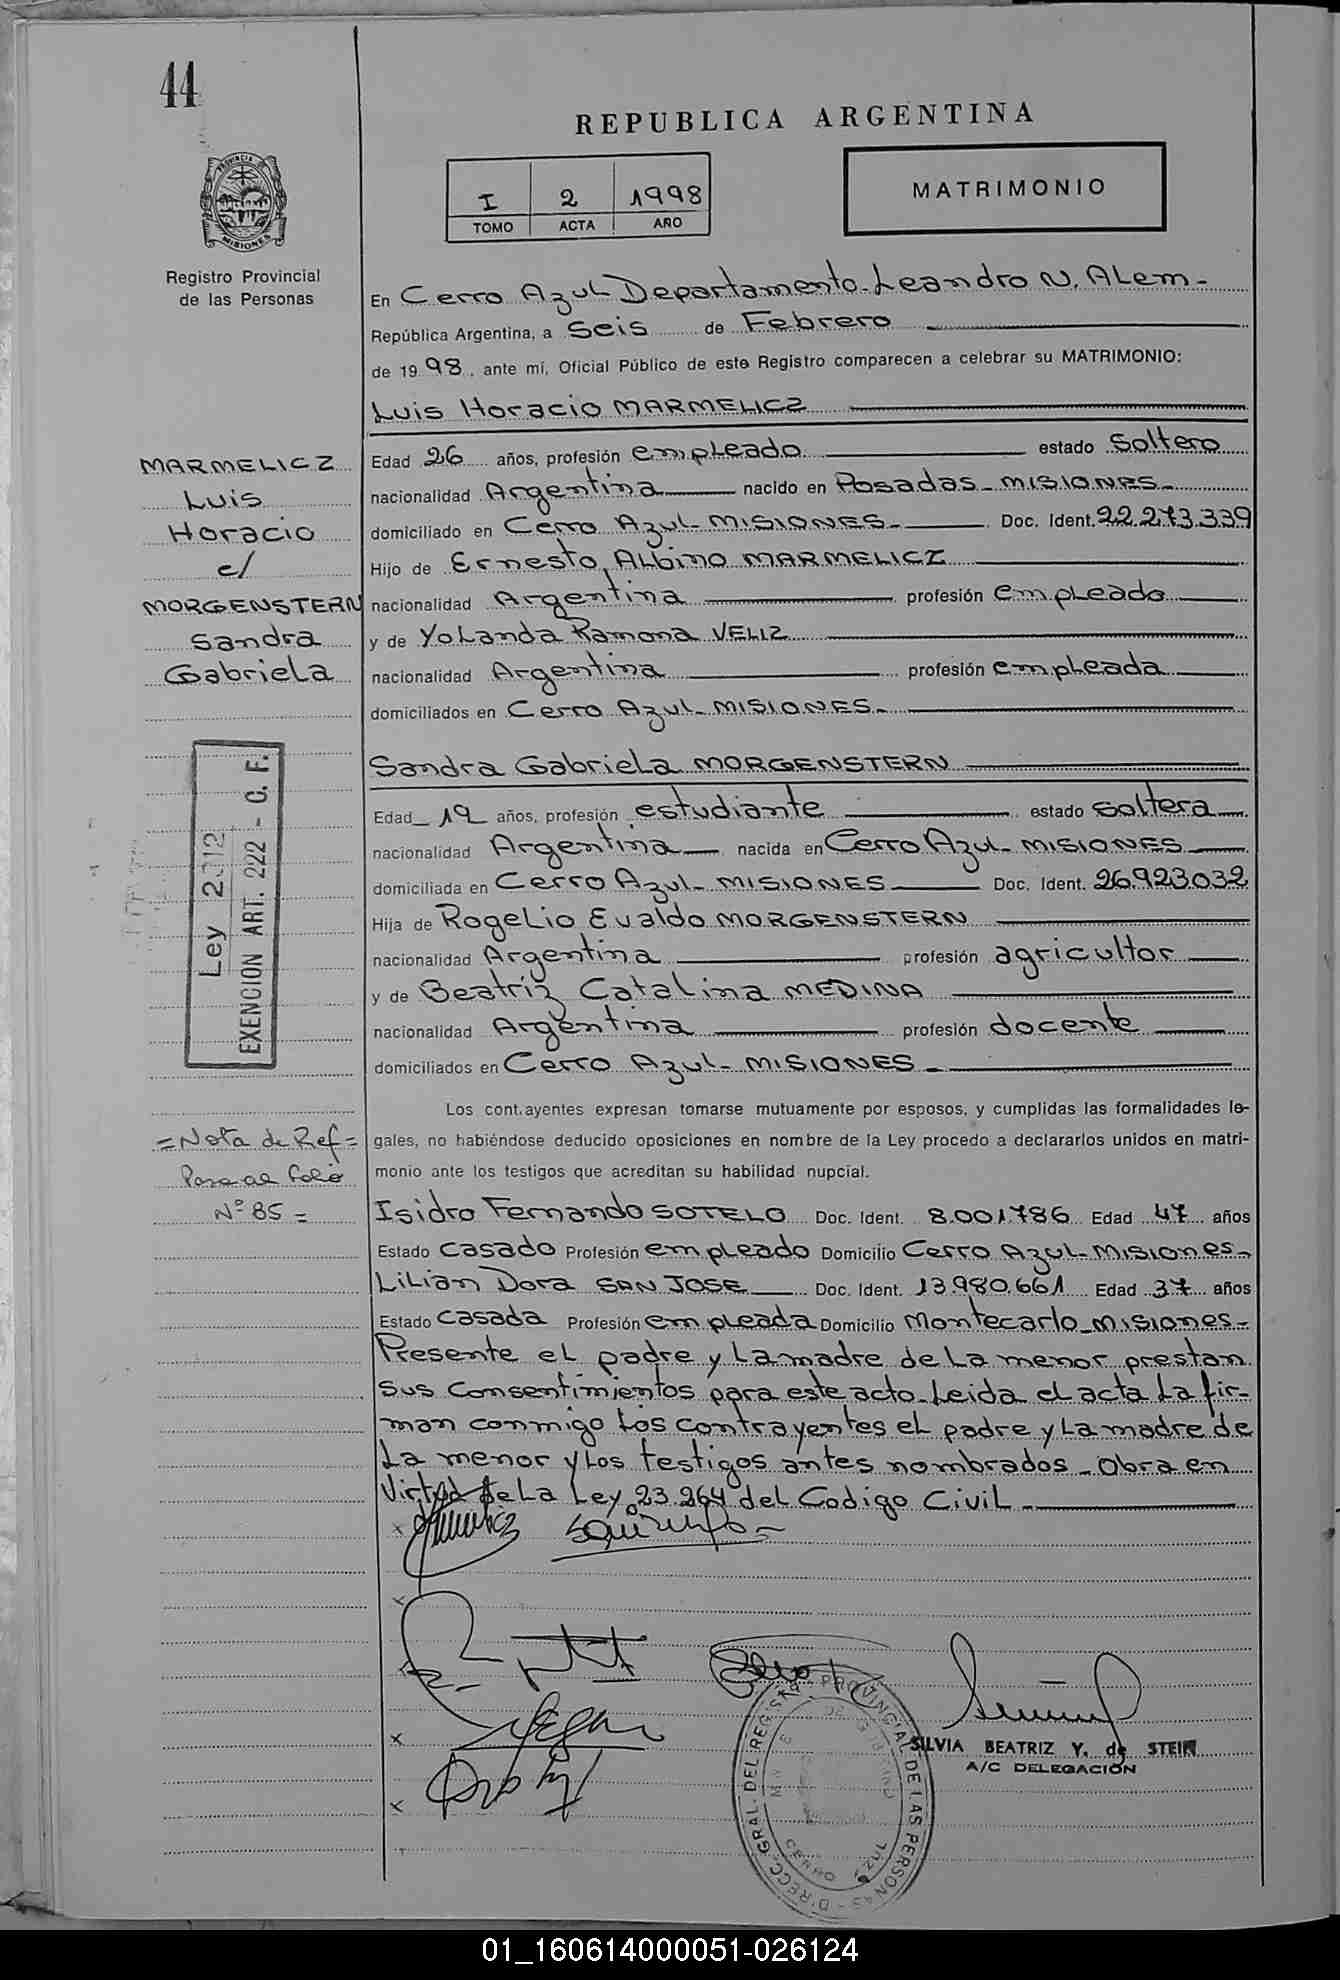 44
REPUBLICA ARGENTINA
PROVINCIA DE
MISIONES
Registro Provincial
de las Personas
I 2 1998
TOMO ACTA AÑO
MATRIMONIO
En Cerro Azul Departamento Leandro N. Alem-
República Argentina, a Seis de Febrero
de 1998, ante mí, Oficial Público de este Registro comparecen a celebrar su MATRIMONIO:
Luis Horacio MARMELICZ
Edad 26 años, profesión empleado estado Soltero
nacionalidad Argentina nacido en Posadas-MISIONES-
domiciliado en Cerro Azul-MISIONES- Doc. Ident. 22.273.339
Hijo de Ernesto Albino MARMELICZ
nacionalidad Argentina profesión empleado
y de Yolanda Ramona VELIZ
nacionalidad Argentina profesión empleada
domiciliados en Cerro Azul-MISIONES-
MARMELICZ
Luis
Horacio
c/
MORGENSTERN
Sandra
Gabriela
Sandra Gabriela MORGENSTERN
Edad 19 años, profesión estudiante estado soltera
nacionalidad Argentina nacida en Cerro Azul-MISIONES
domiciliada en Cerro Azul-MISIONES Doc. Ident. 26.923.032
Hija de Rogelio Evaldo MORGENSTERN
nacionalidad Argentina profesión agricultor
y de Beatriz Catalina MEDINA
nacionalidad Argentina profesión docente
domiciliados en Cerro Azul-MISIONES-
Ley 2312
EXENCION ART. 222 - C. F.
Los contrayentes expresan tomarse mutuamente por esposos, y cumplidas las formalidades le-
gales, no habiéndose deducido oposiciones en nombre de la Ley procedo a declararlos unidos en matri-
monio ante los testigos que acreditan su habilidad nupcial.
=Nota de Ref=
Pasa al Folio
Nº 85=
Isidro Fernando SOTELO Doc. Ident. 8.001.786 Edad 47 años
Estado casado Profesión empleado Domicilio Cerro Azul-MISIONES-
Lilian Dora SAN JOSE Doc. Ident. 13.980.661 Edad 37 años
Estado casada Profesión empleada Domicilio Montecarlo-MISIONES-
Presente el padre y la madre de la menor prestan
sus consentimientos para este acto-Leida el acta la fir-
man conmigo los contrayentes el padre y la madre de
la menor y los testigos antes nombrados-Obra en
virtud de la Ley 23.264 del Codigo Civil-
SILVIA BEATRIZ Y. de STEIN
A/C DELEGACIÓN
DIRECC. GRAL. DEL REGISTRO PROVINCIAL DE LAS PERSONAS
CERRO AZUL
01_160614000051-026124